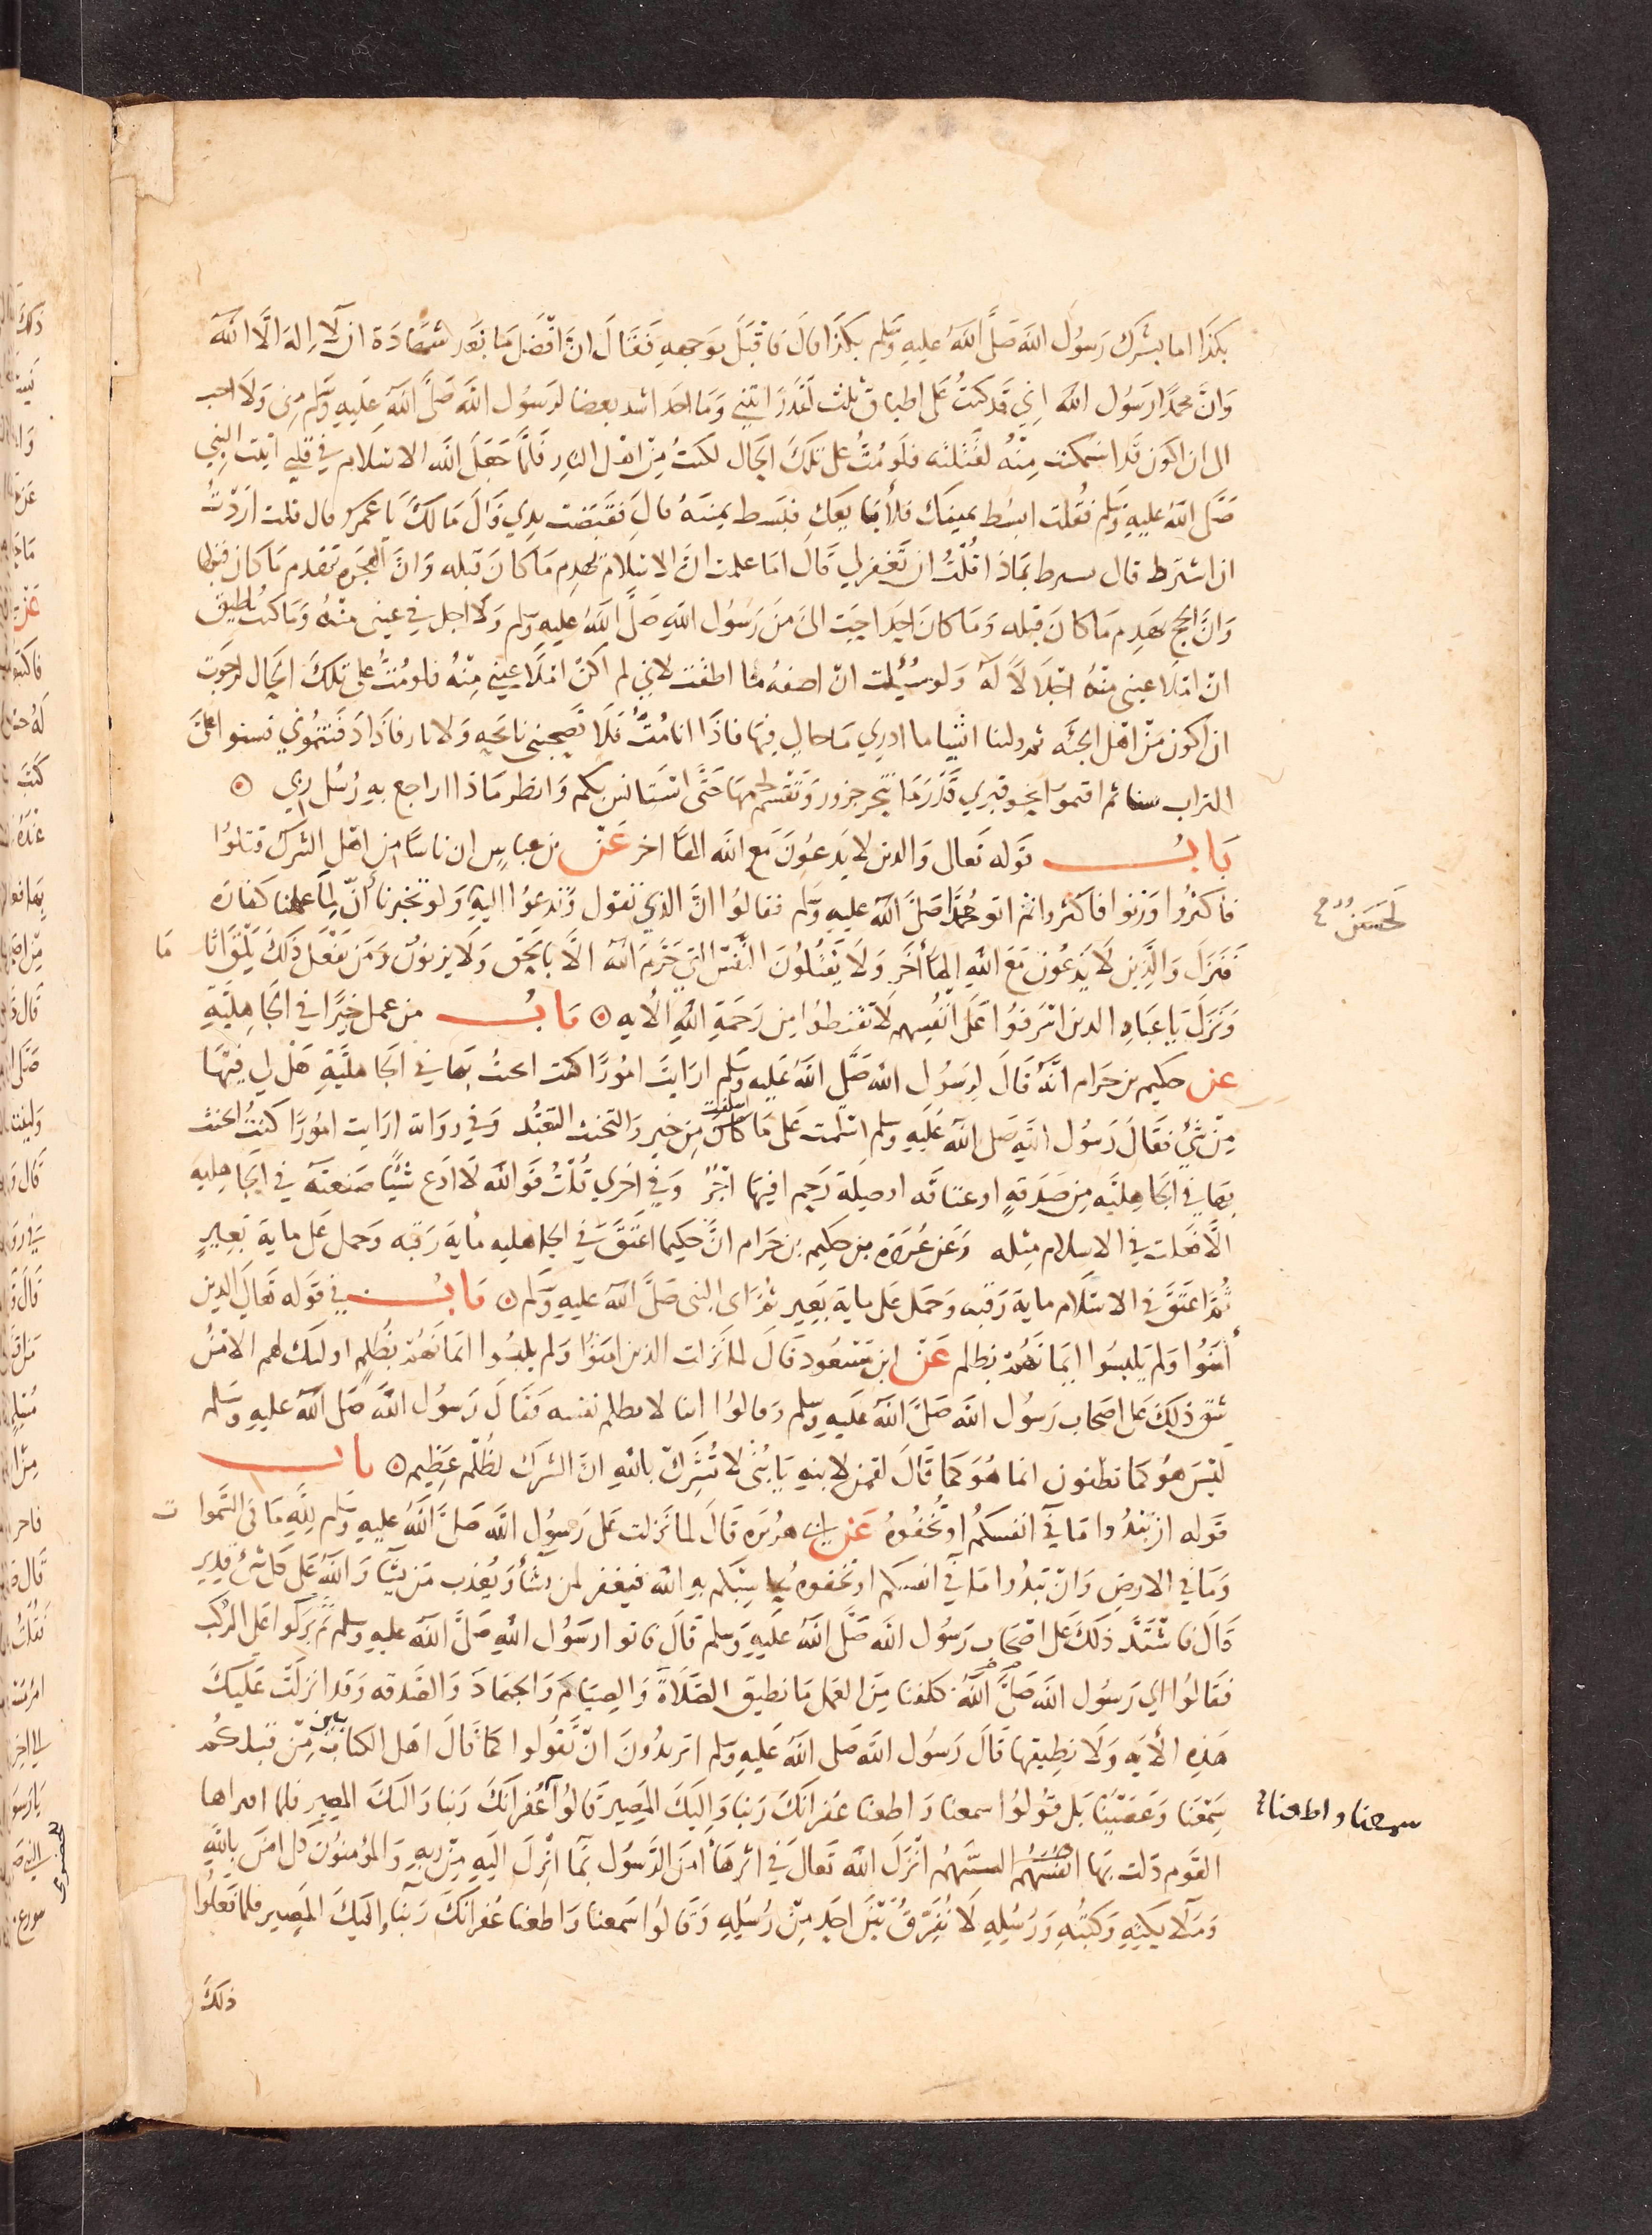 بكذا اما بشرك رسول الله صلى الله عليه وسلم بكذا قال فاقبل بوجهه فقال ان افضل ما نعد شهادة ان لا اله الا الله
وان محمدا رسول الله اني قد كنت على اطباق ثلث لقد رايتني وما احد اشد بغضا لرسول الله صلى الله عليه وسلم مني ولا احب
الي ان اكون قد استمكنت منه لقتلته فلو مت على تلك الحال لكنت من اهل النار فلما جعل الله الاسلام في قلبي اتيت النبي
صلى الله عليه وسلم فقلت ابسط يمينك فلأبايعك فبسط يمينه قال فقبضت يدي قال مالك يا عمرو قال قلت اردت
ان اشترط قال تشترط بماذا قلت ان تغفر لي قال اما علمت ان الاسلام يهدم ما كان قبله وان الهجرة تهدم ما كان قبلها
وان الحج يهدم ما كان قبله وما كان احد احب الي من رسول الله صلى الله عليه وسلم ولا اجل في عيني منه وما كنت اطيق
ان املا عيني منه اجلالا له ولو سئلت ان اصفه ما اطقت لاني لم اكن املا عيني منه فلو مت على تلك الحال لرجوت
ان اكون من اهل الجنة ثم ولينا اشيا ما ادري ما حالي فيها فاذا انا مت فلا تصحبني نايحة ولا نار فاذا دفنتموني فسنوا علي
التراب سنا ثم اقيموا نحو قبري قدر ما تنحر جزور وتقسم لحمها حتى استانس بكم وانظر ماذا اراجع به رسل ربي
باب قوله تعالى والذين لا يدعون مع الله الها اخر عن بن عباس ان ناسا من اهل الشرك قتلوا
فاكثروا وزنوا فاكثروا ثم اتوا محمدا صلى الله عليه وسلم فقالوا ان الذي تقول وتدعوا اليه ولو تخبرنا أن لما عملنا كفارة
لحسن
فنزل والذين لا يدعون مع الله الها أخر ولا يقتلون النفس التي حرم الله الا بالحق ولا يزنون ومن يفعل ذلك يلق اثا
ما
ونزل يا عبادي الذين اسرفوا على انفسهم لا تقنطوا من رحمة الله الايه باب من عمل خيرا في الجاهلية
عن حكيم بن حزام انه قال لرسول الله صلى الله عليه وسلم ارايت امورا كنت اتحنث بها في الجاهلية هل لي فيها
من شئ فقال رسول الله صلى الله عليه وسلم اسلمت على ما اسلفت من خير والتحنث التعبد وفي رواية ارايت امورا كنت اتحنث
بها في الجاهلية من صدقة او عتاقة او صلة رحم افيها اجر وفي اخرى قلت فوالله لا ادع شيئا صنعته في الجاهلية
الا فعلت في الاسلام مثله وعن عروة بن حكيم بن حزام ان حكيما اعتق في الجاهليه ماية رقبه وحمل على ماية بعير
ثم اعتق في الاسلام ماية رقبه وحمل على ماية بعير ثم اتى النبي صلى الله عليه وسلم باب في قوله تعالى الذين
أمنوا ولم يلبسوا ايمانهم بظلم عن ابن مسعود قال لما نزلت الذين امنوا ولم يلبسوا ايمانهم بظلم اوليك لهم الامن
شق ذلك على اصحاب رسول الله صلى الله عليه وسلم وقالوا اينا لا يظلم نفسه فقال رسول الله صلى الله عليه وسلم
ليس هو كما تظنون انما هو كما قال لقمن لابنه يا بني لا تشرك بالله ان الشرك لظلم عظيم باب
قوله ان تبدوا ما في انفسكم او تخفوه عن ابي هريره قال لما نزلت على رسول الله صلى الله عليه وسلم لله ما في السموا
ت
وما في الارض وان تبدوا ما في انفسكم او تخفوه يحاسبكم به الله فيغفر لمن يشأ ويعذب من يشآ والله على كل شئ قدير
قال فاشتد ذلك على اصحاب رسول الله صلى الله عليه وسلم قال فاتوا رسول الله صلى الله عليه وسلم ثم بركوا على الركب
فقالوا اي رسول الله صلى الله كلفنا من العمل ما نطيق الصلاة والصيام والجهاد والصدقه وقد انزلت عليك
هذه الأيه ولا نطيقها قال رسول الله صلى الله عليه وسلم اتريدون ان تقولوا كما قال اهل الكتابين من قبلكم
سمعنا وعصينا بل قولوا سمعنا واطعنا غفرانك ربنا واليك المصير قالوا غفرانك ربنا واليك المصير فلما اقراها
سمعنا واطعنا
القوم ذلت بها انفسهم السنتهم انزل الله تعالى في اثرها أمن الرسول بما انزل اليه من ربه والمؤمنون كل امن بالله
وملايكته وكتبه ورسله لا نفرق بين احد من رسله وقالوا سمعنا واطعنا غفرانك ربنا واليك المصير فلما فعلوا
ذلك